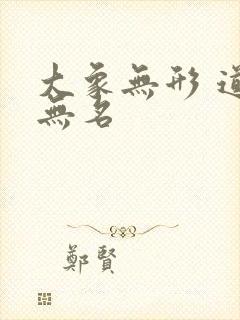 大象無形 道
無名
鄭賢